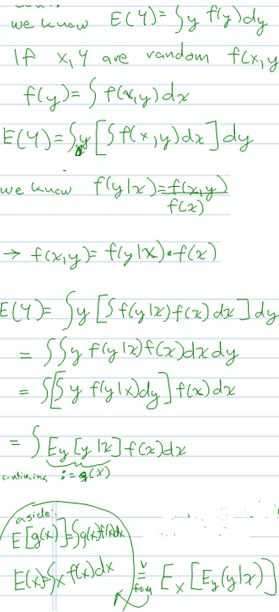 we know E(Y)=∫y f(y)dy
If x,y are random f(x,y
f(y)=∫f(x,y)dx
E(Y)=∫y[∫f(x,y)dx]dy
we know f(y|x)=f(x,y)/f(x)
→ f(x,y)=f(y|x)•f(x)
E(Y)=∫y[∫f(y|x)f(x)dx]dy
=∫∫y f(y|x)f(x)dxdy
=∫[∫y f(y|x)dy]f(x)dx
=∫Ey[y|x]f(x)dx
:= g(x)
aside:
E[g(x)]=∫g(x)f(x)dx
E(x)=∫x f(x)dx = Ex[Ey(y|x)]